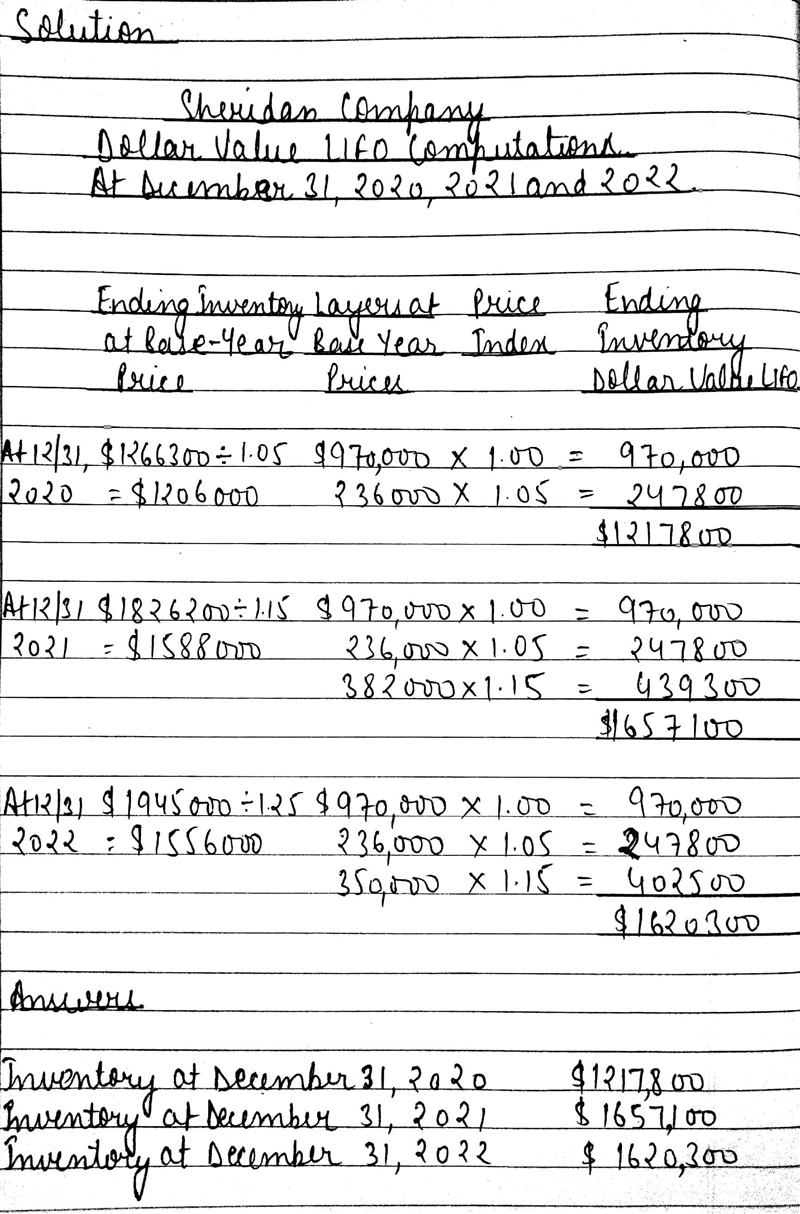 Solution
Sheridan Company
Dollar Value LIFO Computations
At December 31, 2020, 2021 and 2022.
Ending Inventory Layers at Price Ending
at Base-Year Base Year Index Inventory
Price Prices Dollar Value LIFO
At 12/31, $1266300÷1.05 $970,000 × 1.00 = 970,000
2020 = $1206000 236000 × 1.05 = 247800
$1217800
At 12/31 $1826200÷1.15 $970,000 × 1.00 = 970,000
2021 = $1588000 236,000 × 1.05 = 247800
382000 × 1.15 = 439300
$1657100
At 12/31 $1945000÷1.25 $970,000 × 1.00 = 970,000
2022 = $1556000 236,000 × 1.05 = 247800
350,000 × 1.15 = 402500
$1620300
Answers
Inventory at December 31, 2020 $1217,800
Inventory at December 31, 2021 $1657,100
Inventory at December 31, 2022 $1620,300